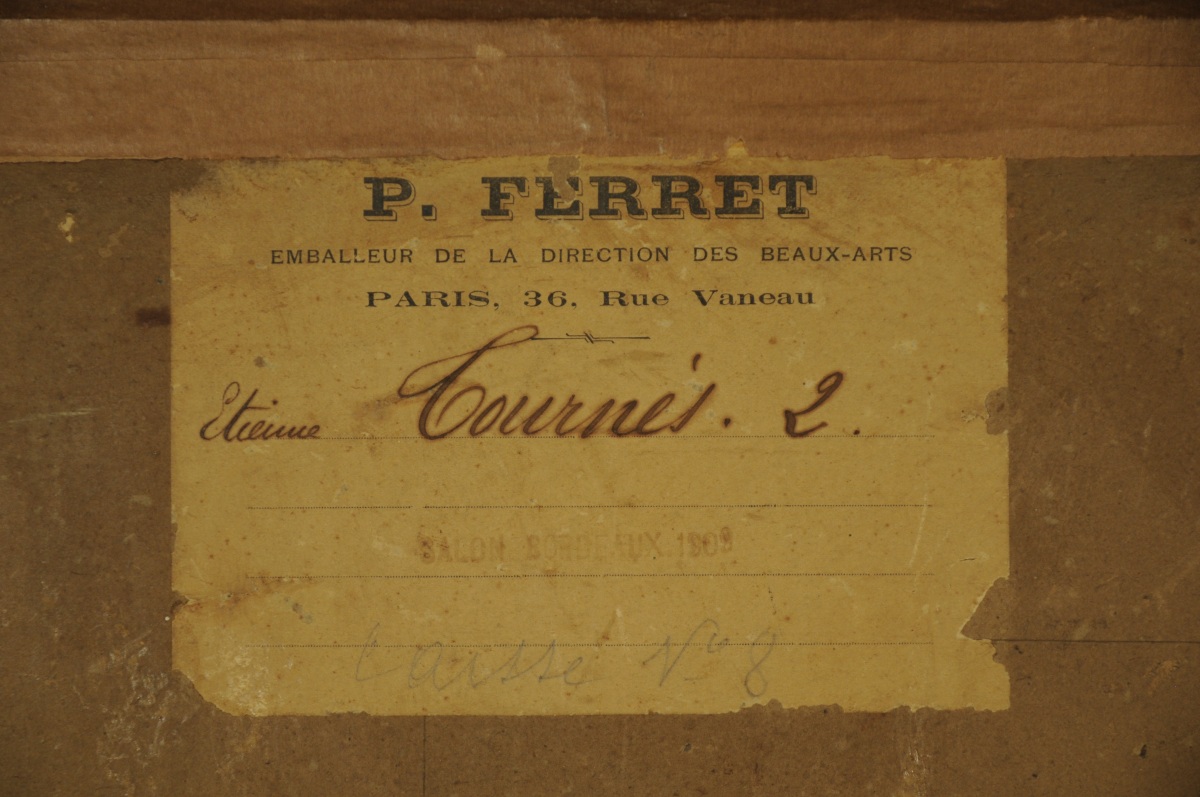 P. FERRET
EMBALLEUR DE LA DIRECTION DES BEAUX-ARTS
PARIS, 36, Rue Vaneau
Etienne Tournés. 2.
SALON BORDEAUX
Caisse No 8